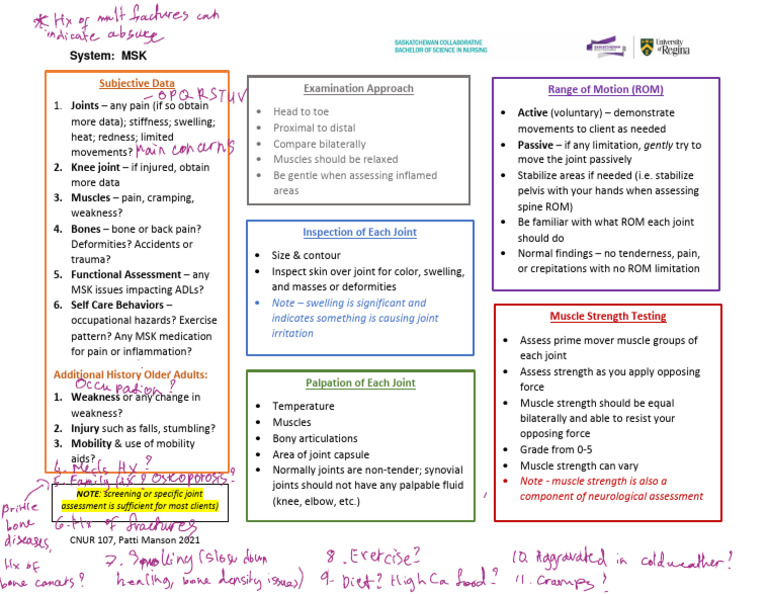 * Hx of mult fractures can
indicate abuse
System: MSK
SASKATCHEWAN COLLABORATIVE
BACHELOR OF SCIENCE IN NURSING
University
of Regina
Subjective Data
- OPQRSTUV
1. Joints – any pain (if so obtain
more data); stiffness; swelling;
heat; redness; limited
movements? main concerns
2. Knee joint – if injured, obtain
more data
3. Muscles – pain, cramping,
weakness?
4. Bones – bone or back pain?
Deformities? Accidents or
trauma?
5. Functional Assessment – any
MSK issues impacting ADLs?
6. Self Care Behaviors –
occupational hazards? Exercise
pattern? Any MSK medication
for pain or inflammation?
Additional History Older Adults:
Occupation?
1. Weakness or any change in
weakness?
2. Injury such as falls, stumbling?
3. Mobility & use of mobility
aids?
4. Meds Hx?
5. Family Hx? Osteoporosis?
NOTE: Screening or specific joint
assessment is sufficient for most clients)
6. Hx of fractures
bone
diseases,
Hx of
bone cancers?
CNUR 107, Patti Manson 2021
7. Smoking (slow down
healing, bone density issues)
8. Exercise?
9. Diet? High Ca food?
10. Aggravated in cold weather?
11. Cramps?
Examination Approach
• Head to toe
• Proximal to distal
• Compare bilaterally
• Muscles should be relaxed
• Be gentle when assessing inflamed
areas
Inspection of Each Joint
• Size & contour
• Inspect skin over joint for color, swelling,
and masses or deformities
• Note – swelling is significant and
indicates something is causing joint
irritation
Palpation of Each Joint
• Temperature
• Muscles
• Bony articulations
• Area of joint capsule
• Normally joints are non-tender; synovial
joints should not have any palpable fluid
(knee, elbow, etc.)
Range of Motion (ROM)
• Active (voluntary) – demonstrate
movements to client as needed
• Passive – if any limitation, gently try to
move the joint passively
• Stabilize areas if needed (i.e. stabilize
pelvis with your hands when assessing
spine ROM)
• Be familiar with what ROM each joint
should do
• Normal findings – no tenderness, pain,
or crepitations with no ROM limitation
Muscle Strength Testing
• Assess prime mover muscle groups of
each joint
• Assess strength as you apply opposing
force
• Muscle strength should be equal
bilaterally and able to resist your
opposing force
• Grade from 0-5
• Muscle strength can vary
• Note - muscle strength is also a
component of neurological assessment